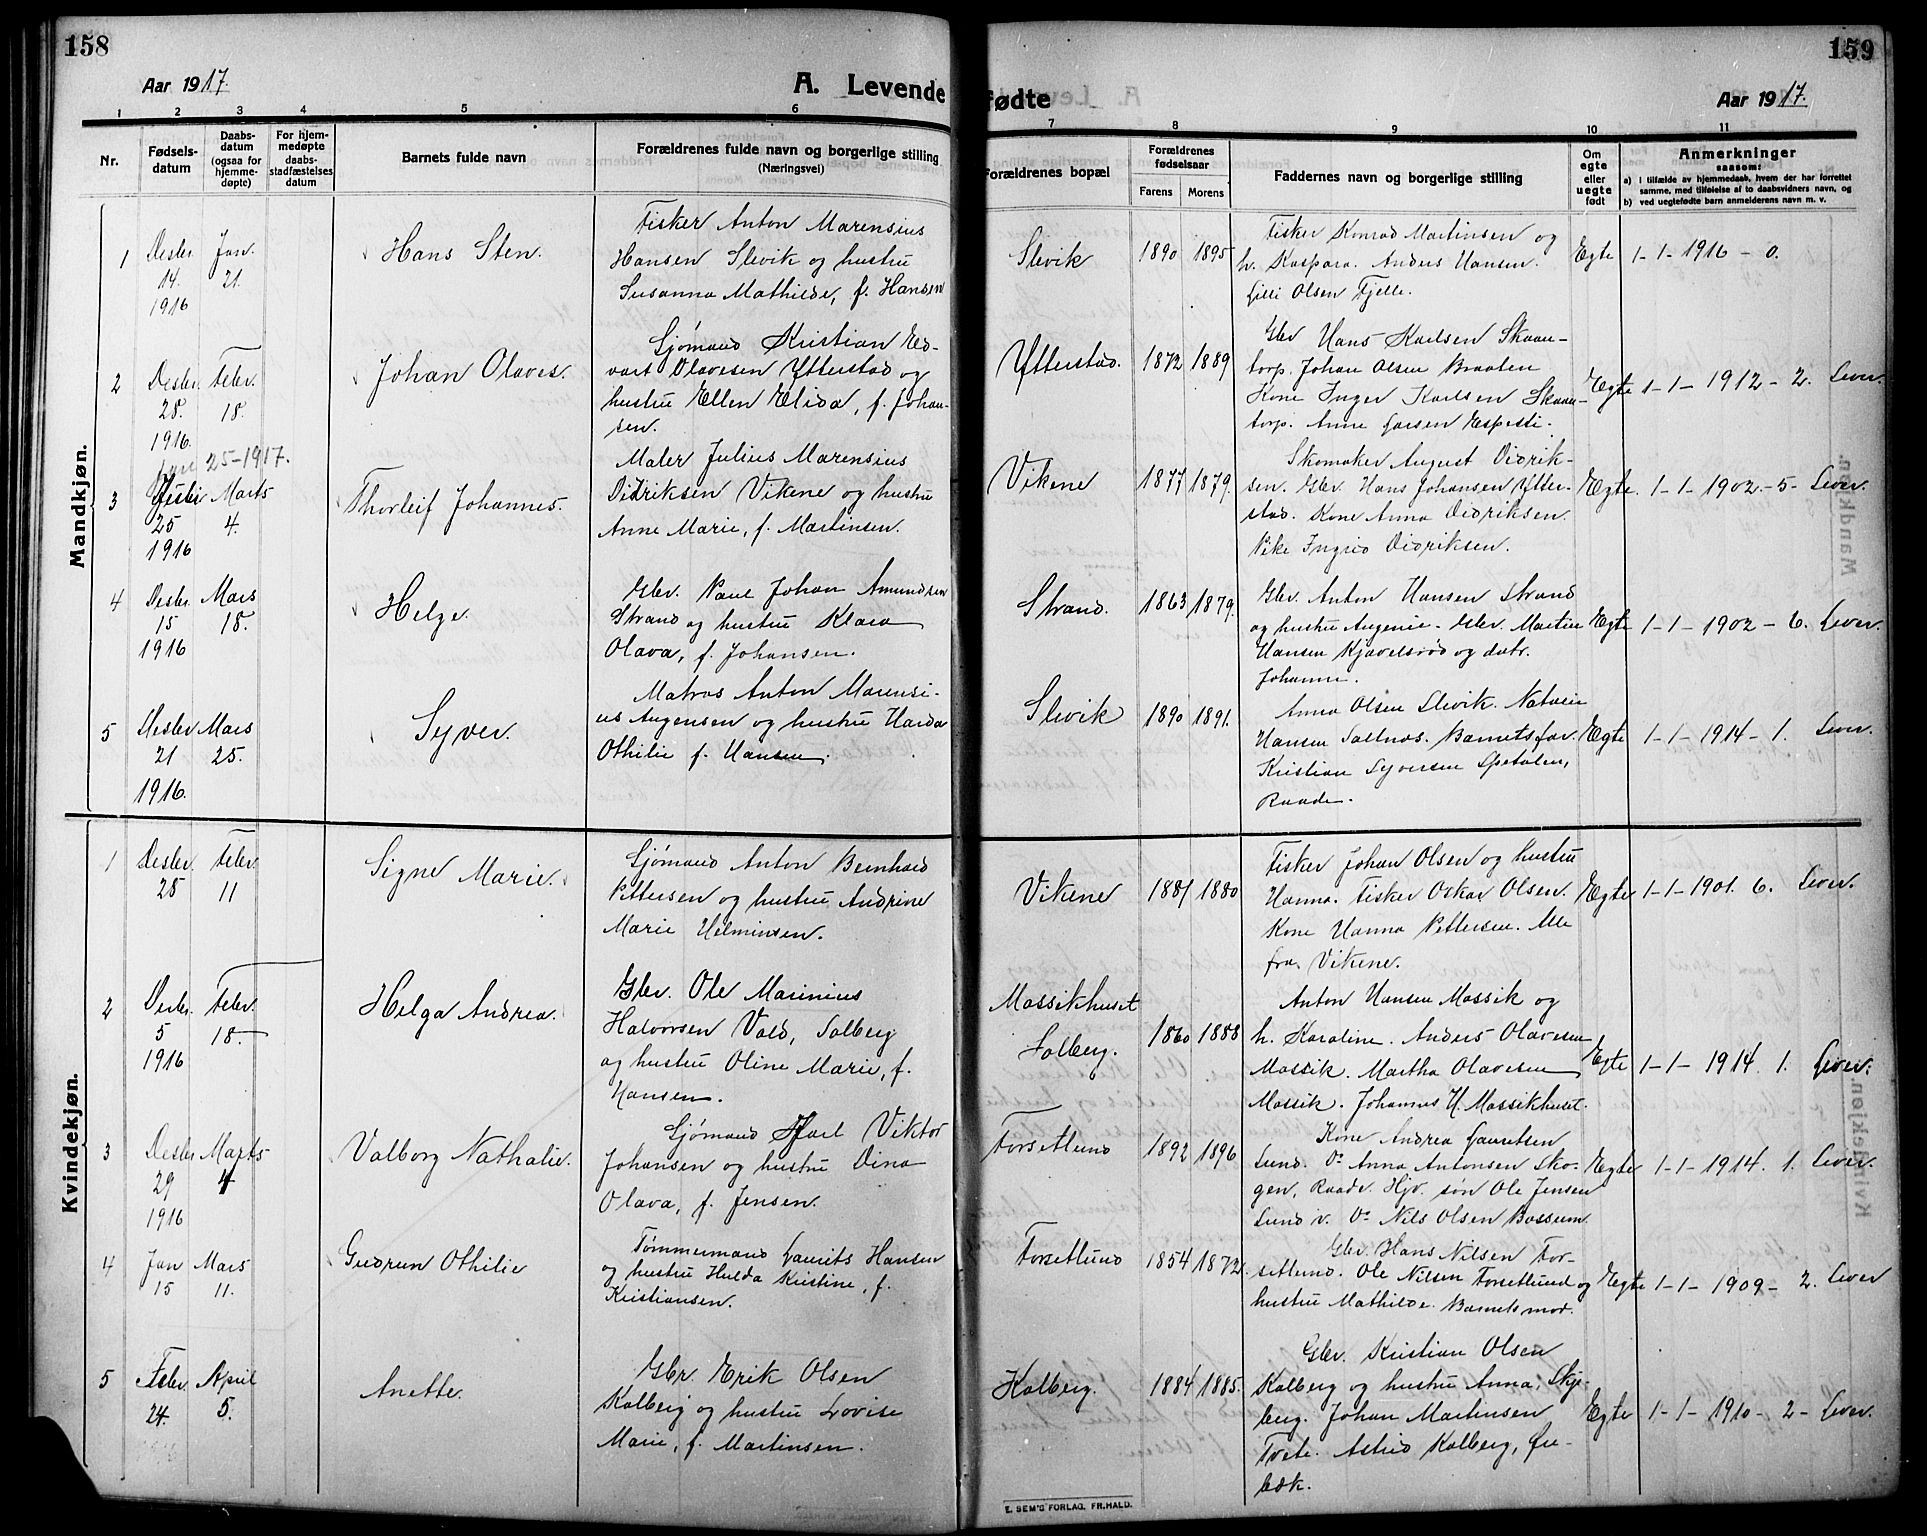 158
159
Aar 1917.
A. Levende
fødte
Aar 1917.
1 2 3 4 5 6 7 8 9 10 11
Nr.
Fødsels-
datum
Daabs-
datum
(ogsaa for
hjemme-
døpte)
For hjem-
medøpte
daabs-
stadfæstelses
datum
Barnets fulde navn
Forældrenes fulde navn og borgerlige stilling
(Næringsvei)
Forældrenes bopæl
Forældrenes
fødselsaar
Farens
Morens
Faddernes navn og borgerlige stilling
Om
egte
eller
uegte
født
Anmerkninger
saasom:
a) i tilfælde av hjemmedaab, hvem der har forrettet
samme, med tilføielse af to daabsvidners navn, og
b) ved uegtefødte barn anmelderens navn m. v.
Mandkjøn.
1
Desbr.
14.
1916
Jan.
21.
Hans Sten.
Fisker Anton Marensius
Hansen Slevik og hustru
Susanna Mathilde, f. Hansen
Slevik
1890
1895
Fisker Konrad Martinsen og
h. Kaspara. Anders Hansen.
Lilli Olsen Fjelle.
Egte
1-1-1916-0.
2
Desbr.
28.
1916.
Febr.
18.
Johan Olaves.
Sjømand Kristian Ed-
vart Olavesen Ytterstad og
hustru Ellen Elida, f. Johan-
sen.
Ytterstad.
1872
1889
Gbr Hans Karlsen Skaan-
torp. Johan Olsen Braaten
Kone Inger Karlsen Skaan-
torp. Anne Larsen
Egte
1-1-1912-2. Lever.
Jan 25-1917.
3
25
1916
Marts
4.
Thorleif Johannes.
Maler Julius Marensius
Didriksen Vikene og hustru
Anne Marie, f. Martinsen.
Vikene
1877
1879.
Skomaker August Didrik-
sen. Gbr. Hans Johansen Ytter-
stad. Kone Anna Didriksen.
Pike Ingrid Didriksen.
Egte
1-1-1902.-5- Lever.
4
Desbr.
15
1916
Mars
18.
Helge.
Gbr. Paul Johan Amundsen
Strand og hustru Klara
Olava, f. Johansen.
Strand.
1863
1879.
Gbr. Anton Hansen Strand
og hustru Augenie. Gbr. Martin
Hansen Kjævelsrød og datr.
Johanne.
Egte
1-1-1902-6. Lever.
5
Desbr
21
1916.
Mars
25.
Syver.
Matros Anton Marensi-
us Augensen og hustru Harda
Othilie f. Hansen.
Slevik
1890
1891.
Anna Olsen Slevik.
Hansen Saltnes. Barnets far.
Kristian Syversen Spetalen,
Raade.
Egte
1-1-1914-1. Lever.
Kvindekjøn.
1
Desbr.
28
Febr.
11
Signe Marie.
Sjømand Anton Bernhard
Pettersen og hustru Andrine
Marie Helminsen.
Vikene
1881
1880
Fisker Johan Olsen og hustru
Hanna. Fisker Oskar Olsen.
Kone Hanna Pettersen. Alle
fra Vikene.
Egte
1-1-1901. 6. Lever.
2
Desbr.
5
1916
Febr.
18.
Helga Andrea.
Gbr. Ole Marinius
Halvorsen Vold, Solberg
og hustru Oline Marie, f.
Hansen.
Mossikhuset
Solberg.
1860
1888
Anton Hansen Mossik og
h. Karoline. Anders Olavesen
Mossik. Martha Olavesen
Mossik. Johannes H. Mossikhuset.
Egte
1-1-1914. 1. Lever.
3
Desbr
29
1916
Marts
4
Valborg Nathalie.
Sjømand Karl Viktor
Johansen og hustru Dina
Olava, f. Jensen.
Forsetlund
1892
1896
Kone Andrea Lauritsen
Lund. Do Anna Antonsen Sko-
gen, Raade. Hjv. søn Ole Jensen
Lund v. Do Nils Olsen Bossum.
Egte
1-1-1914. 1. Lever.
4
Jan
15
Mars
11.
Gudrun Othilie
Tømmermand Laurits Hansen
og hustru Hulda Kristine, f.
Kristiansen.
Forsetlund
1854
1872.
Gbr. Hans Nilsen For-
setlund. Ole Nilsen Forsetlund og
hustru Mathilde. Barnets mor.
Egte
1-1-1909-2. Lever
5
Febr.
24.
April
5.
Anette.
Gbr. Erik Olsen
Kolberg og hustru Lovise
Marie, f. Martinsen.
Kolberg.
1884
1885.
Gbr. Kristian Olsen
Kolberg og hustru Anna, Skje-
berg. Johan Martinsen
Tvete. Astrid Kolberg, Øre-
bæk.
Egte
1-1-1910-2- Lever.
E. SEM'S FORLAG, FR.HALD.